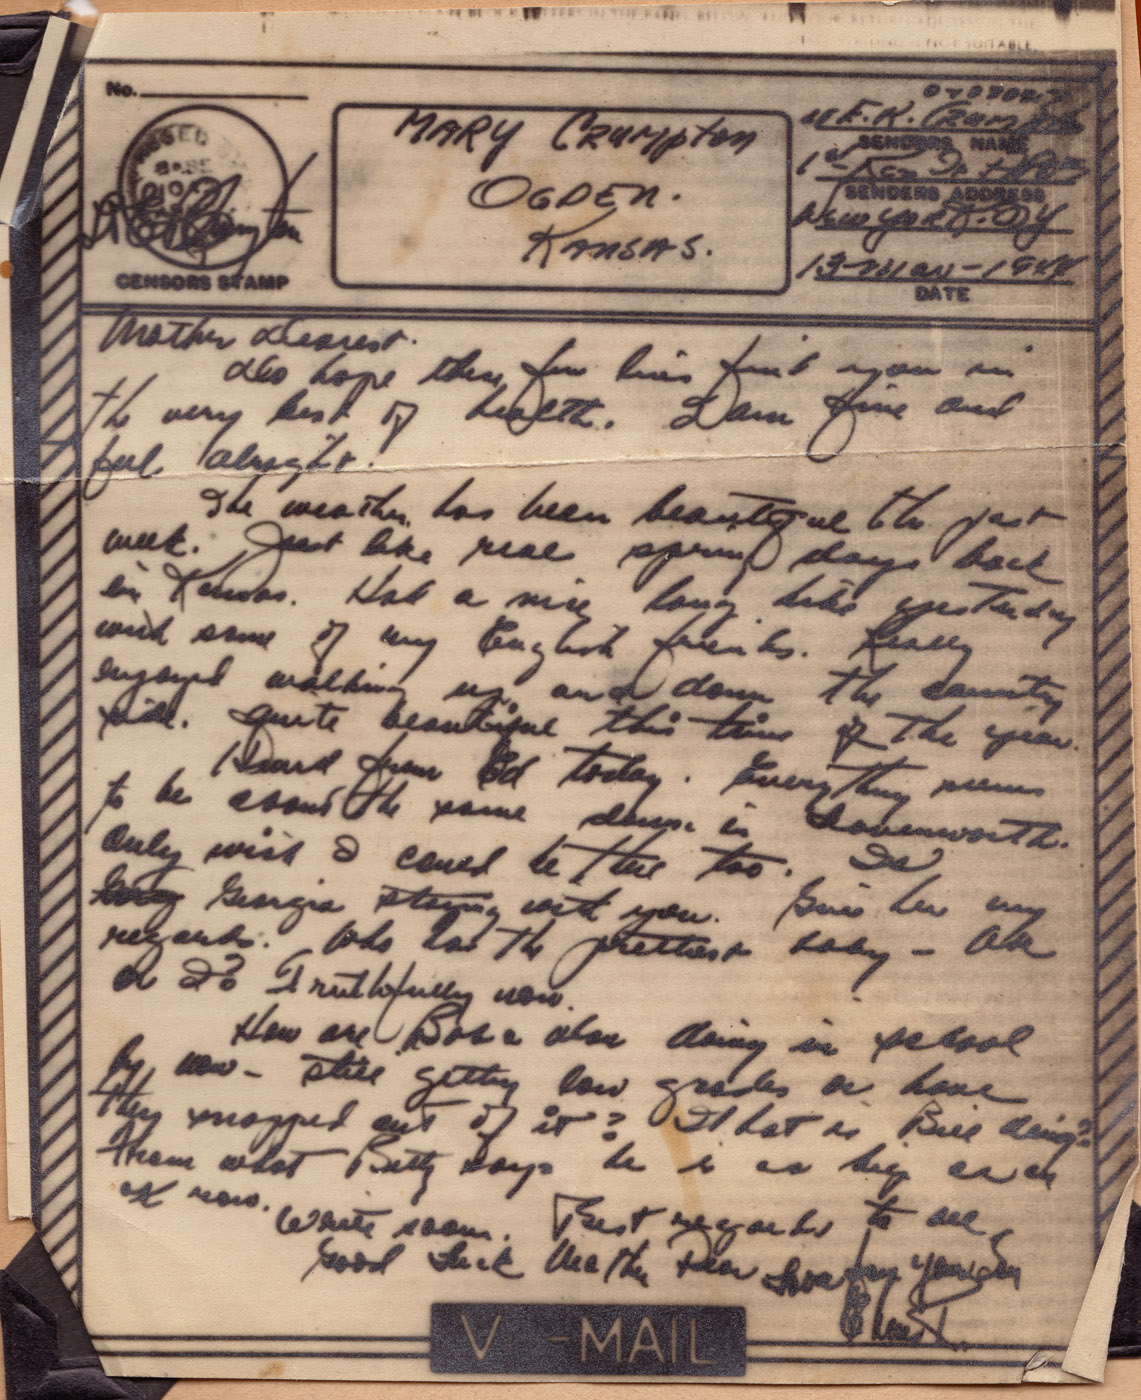 No.
MARY Crumpton
OGDEN.
KANSAS.
E.K. Crumpton
SENDERS NAME
SENDERS ADDRESS
New York. NY
13-Mar-1944
DATE
CENSORS STAMP
Mother Dearest.
Do hope these few lines find you in
the very best of health. I am fine and
feel alright.
The weather has been beautiful the past
week. Just like real spring days back
in Kansas. Had a nice long hike yesterday
with some of my English friends. Really
enjoyed walking up and down the country
side. Quite beautiful this time of the year.
Heard from Ed today. Everything seems
to be about the same down in Leavenworth.
Only wish I could be there too. Is
Georgia staying with you. Give her my
regards. Who has the prettiest baby -
or I? Truthfully now.
How are Bob & doing in school
by now - still getting low grades or have
they snapped out of it? What is Bill doing?
From what Betty says he is as big as an
ox now.
Write soon. Best regards to all
Good Luck Mother Dear Love from your son
V - MAIL